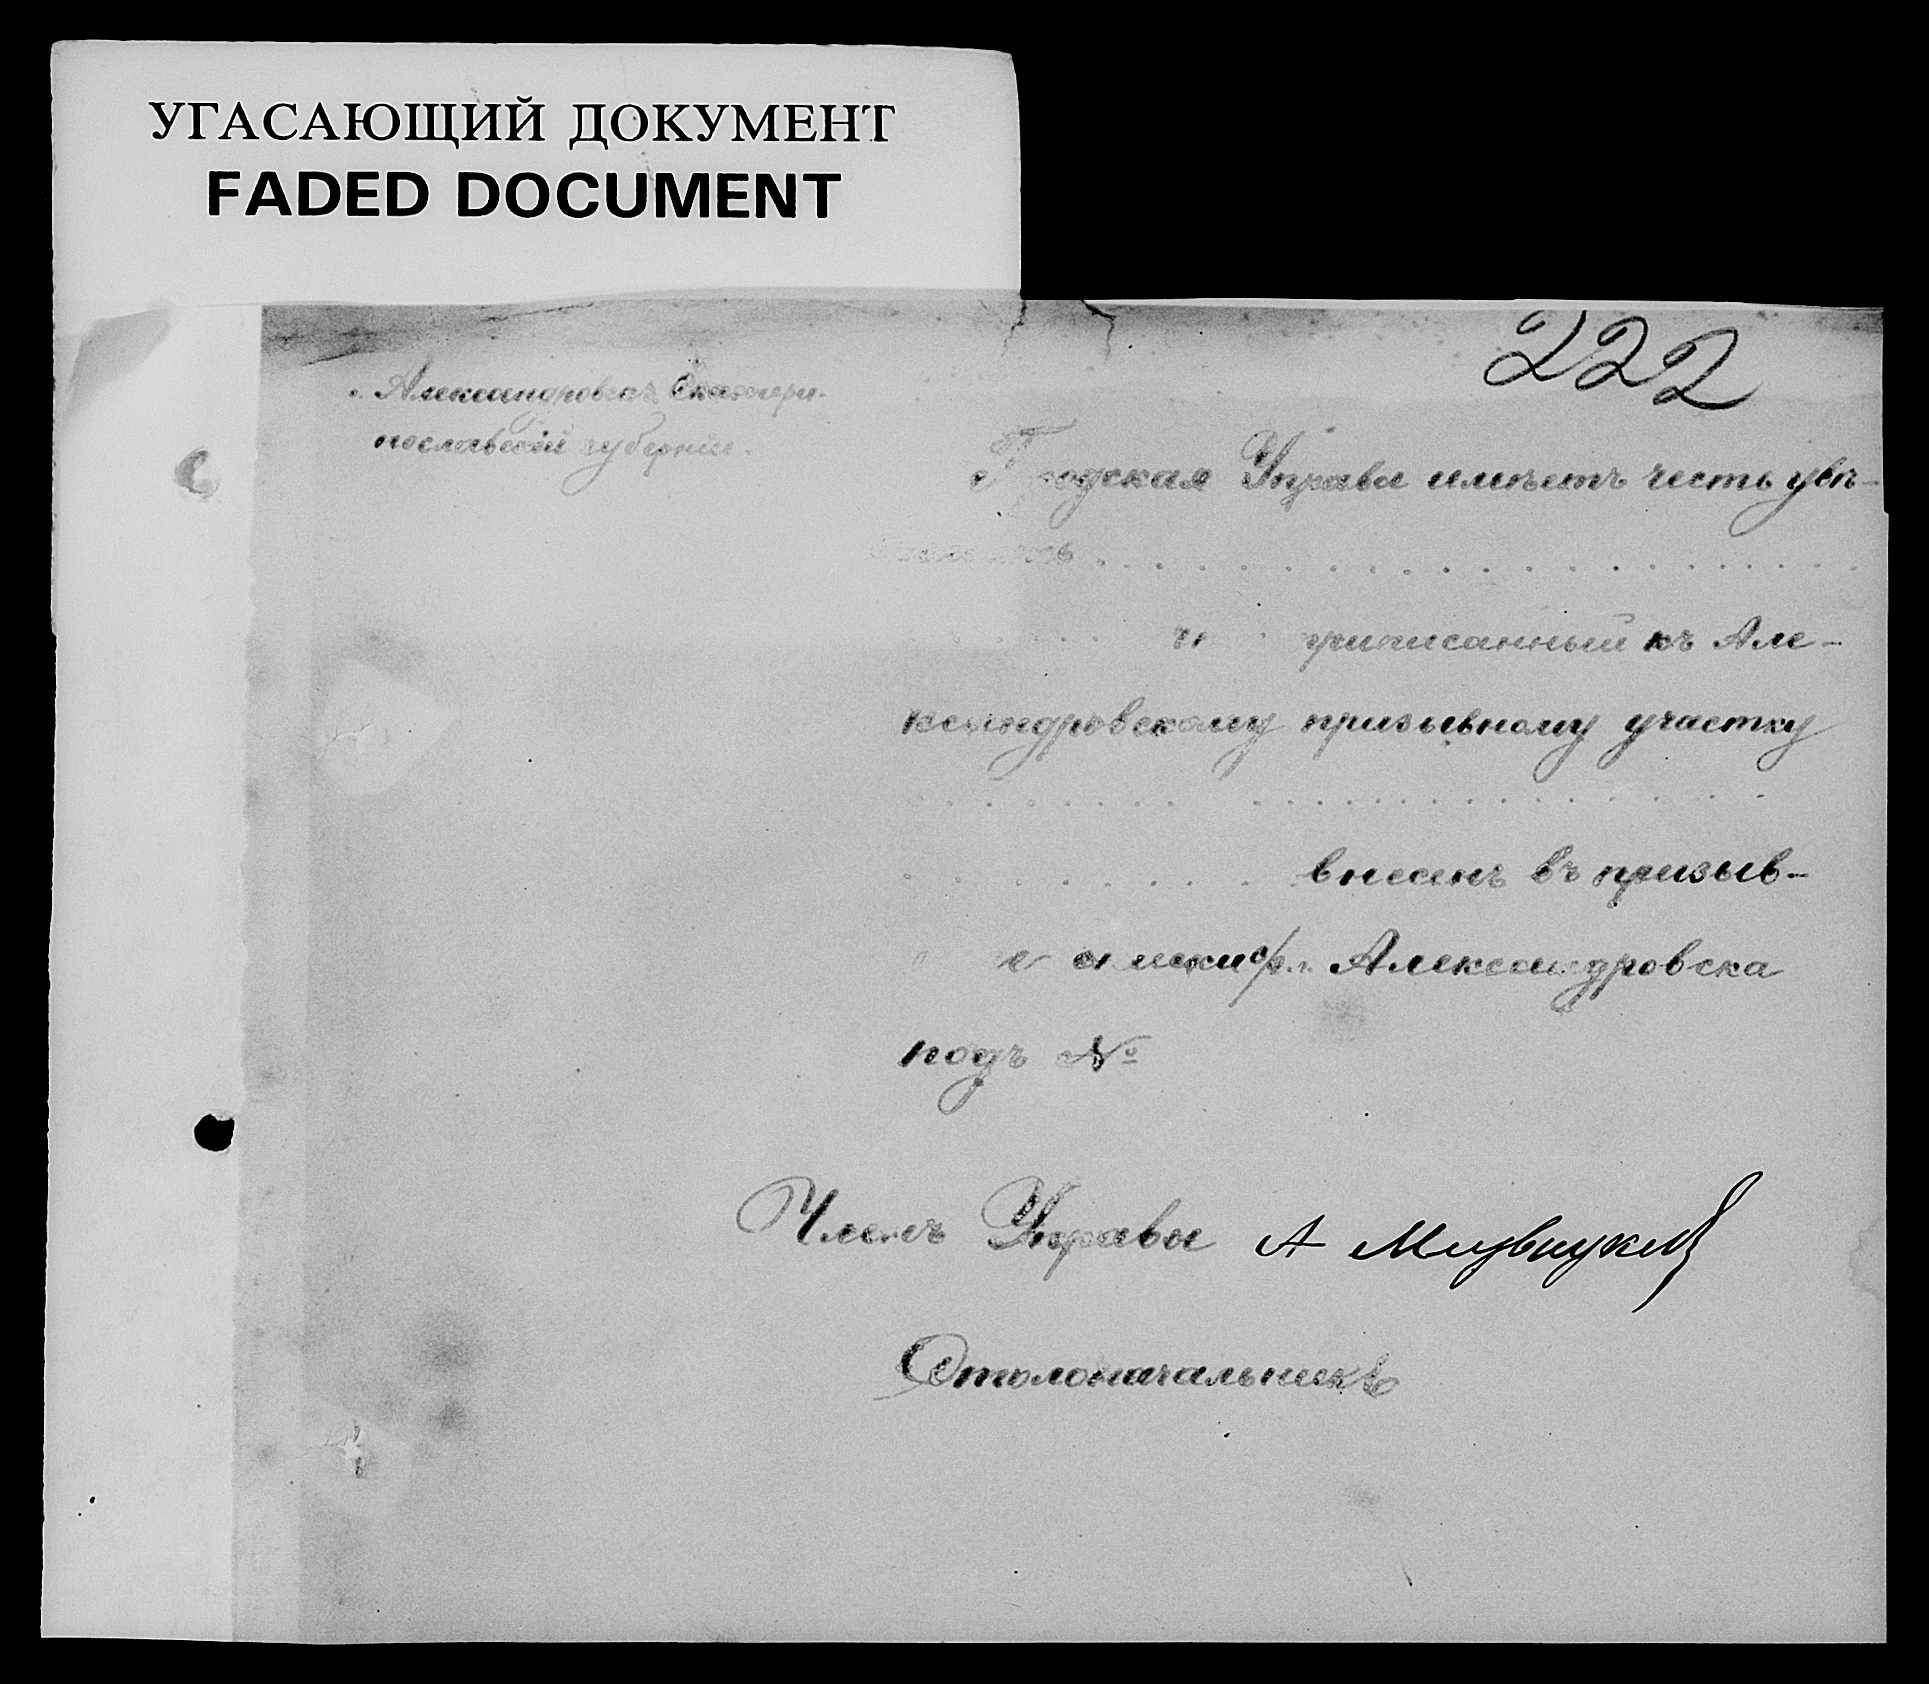 УГАСАЮЩИЙ ДОКУМЕНТ
FADED DOCUMENT
222
г. Александровскъ Екатери-
нославской губерніи.
Городская Управа имѣетъ честь увѣ-
приписанный къ Але-
ксандровскому призывному участку
внесенъ въ призыв-
Александровска
подъ №
Членъ Управы А
Столоначальникъ